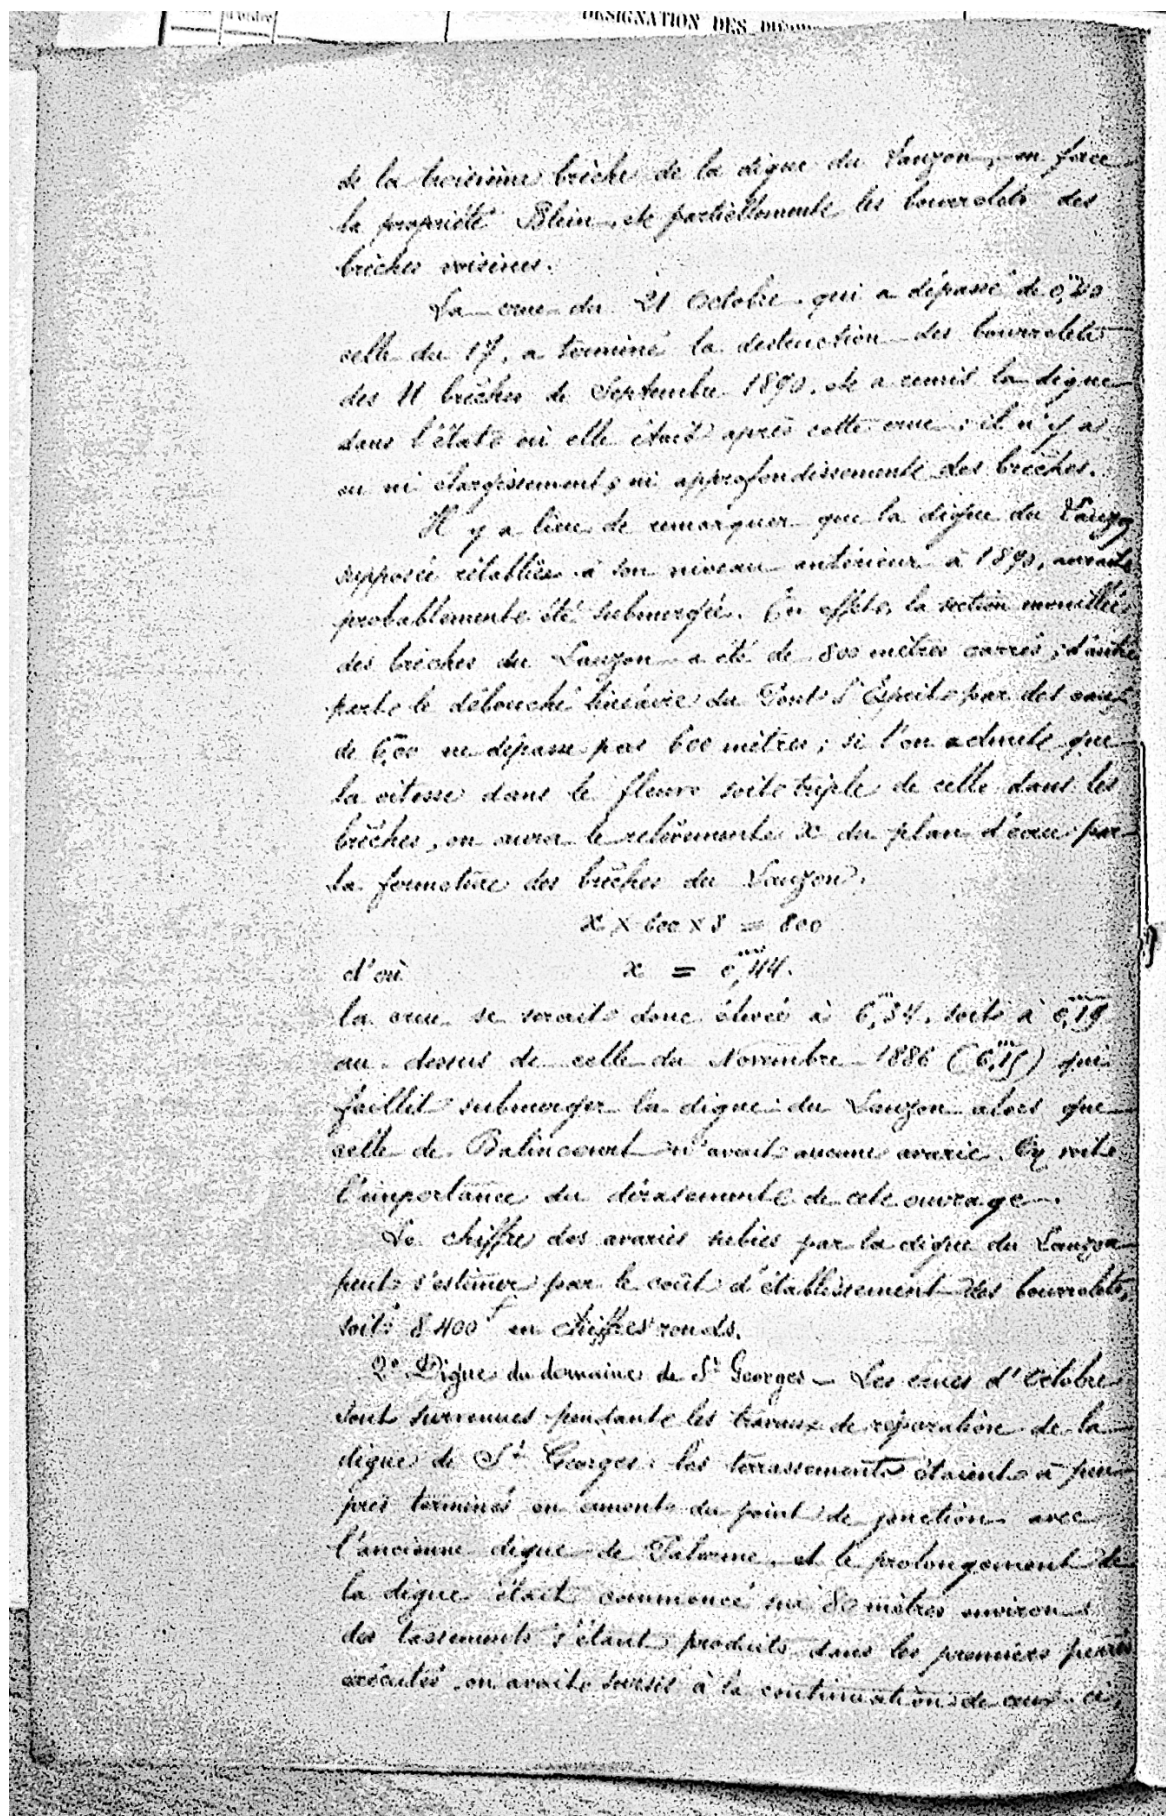 d'ordre
DESIGNATION DES
de la troisième brèche de la digue du Lauzon, en face
la propriété Blein, et partiellement les bourrelets des
brèches voisines.
La crue du 21 Octobre qui a dépassé de 0,m40
celle du 17, a terminé la destruction des bourrelets
des 11 brèches de Septembre 1890, et a remis la digue
dans l'état où elle était après cette crue ; il n'y a
eu ni élargissement, ni approfondissement des brèches.
Il y a lieu de remarquer que la digue du Lauzon
supposée rétablie à son niveau antérieur à 1890, aurait
probablement été submergée. En effet, la section mouillée
des brèches du Lauzon a été de 800 mètres carrés ; d'autre
part le débouché linéaire du Pont St Esprit par des eaux
de 6,m00 ne dépasse pas 600 mètres ; si l'on admet que
la vitesse dans le fleuve soit triple de celle dans les
brèches, on aura le relèvement x du plan d'eau par
la fermeture des brèches du Lauzon.
x × 600 × 3 = 800
d'où x = 0,m44.
la crue se serait donc élevée à 6,m34, soit à 0,m19
au-dessus de celle du Novembre 1886 (6,m15) qui
faillit submerger la digue du Lauzon alors que
celle de Balincourt n'avait aucune avarie. On voit
l'importance du dérasement de cet ouvrage.
Le chiffre des avaries subies par la digue du Lauzon
peut s'estimer par le coût d'établissement des bourrelets,
soit 8400f en chiffres ronds.
2° Digue du domaine de St Georges – Les crues d'Octobre
sont survenues pendant les travaux de réparation de la
digue de St Georges ; les terrassements étaient à peu
près terminés en amont du point de jonction avec
l'ancienne digue de Palerme, et le prolongement de
la digue était commencé sur 80 mètres environ ;
des tassements s'étant produits dans les premiers perrés
exécutés, on avait sursis à la continuation de ceux-ci,